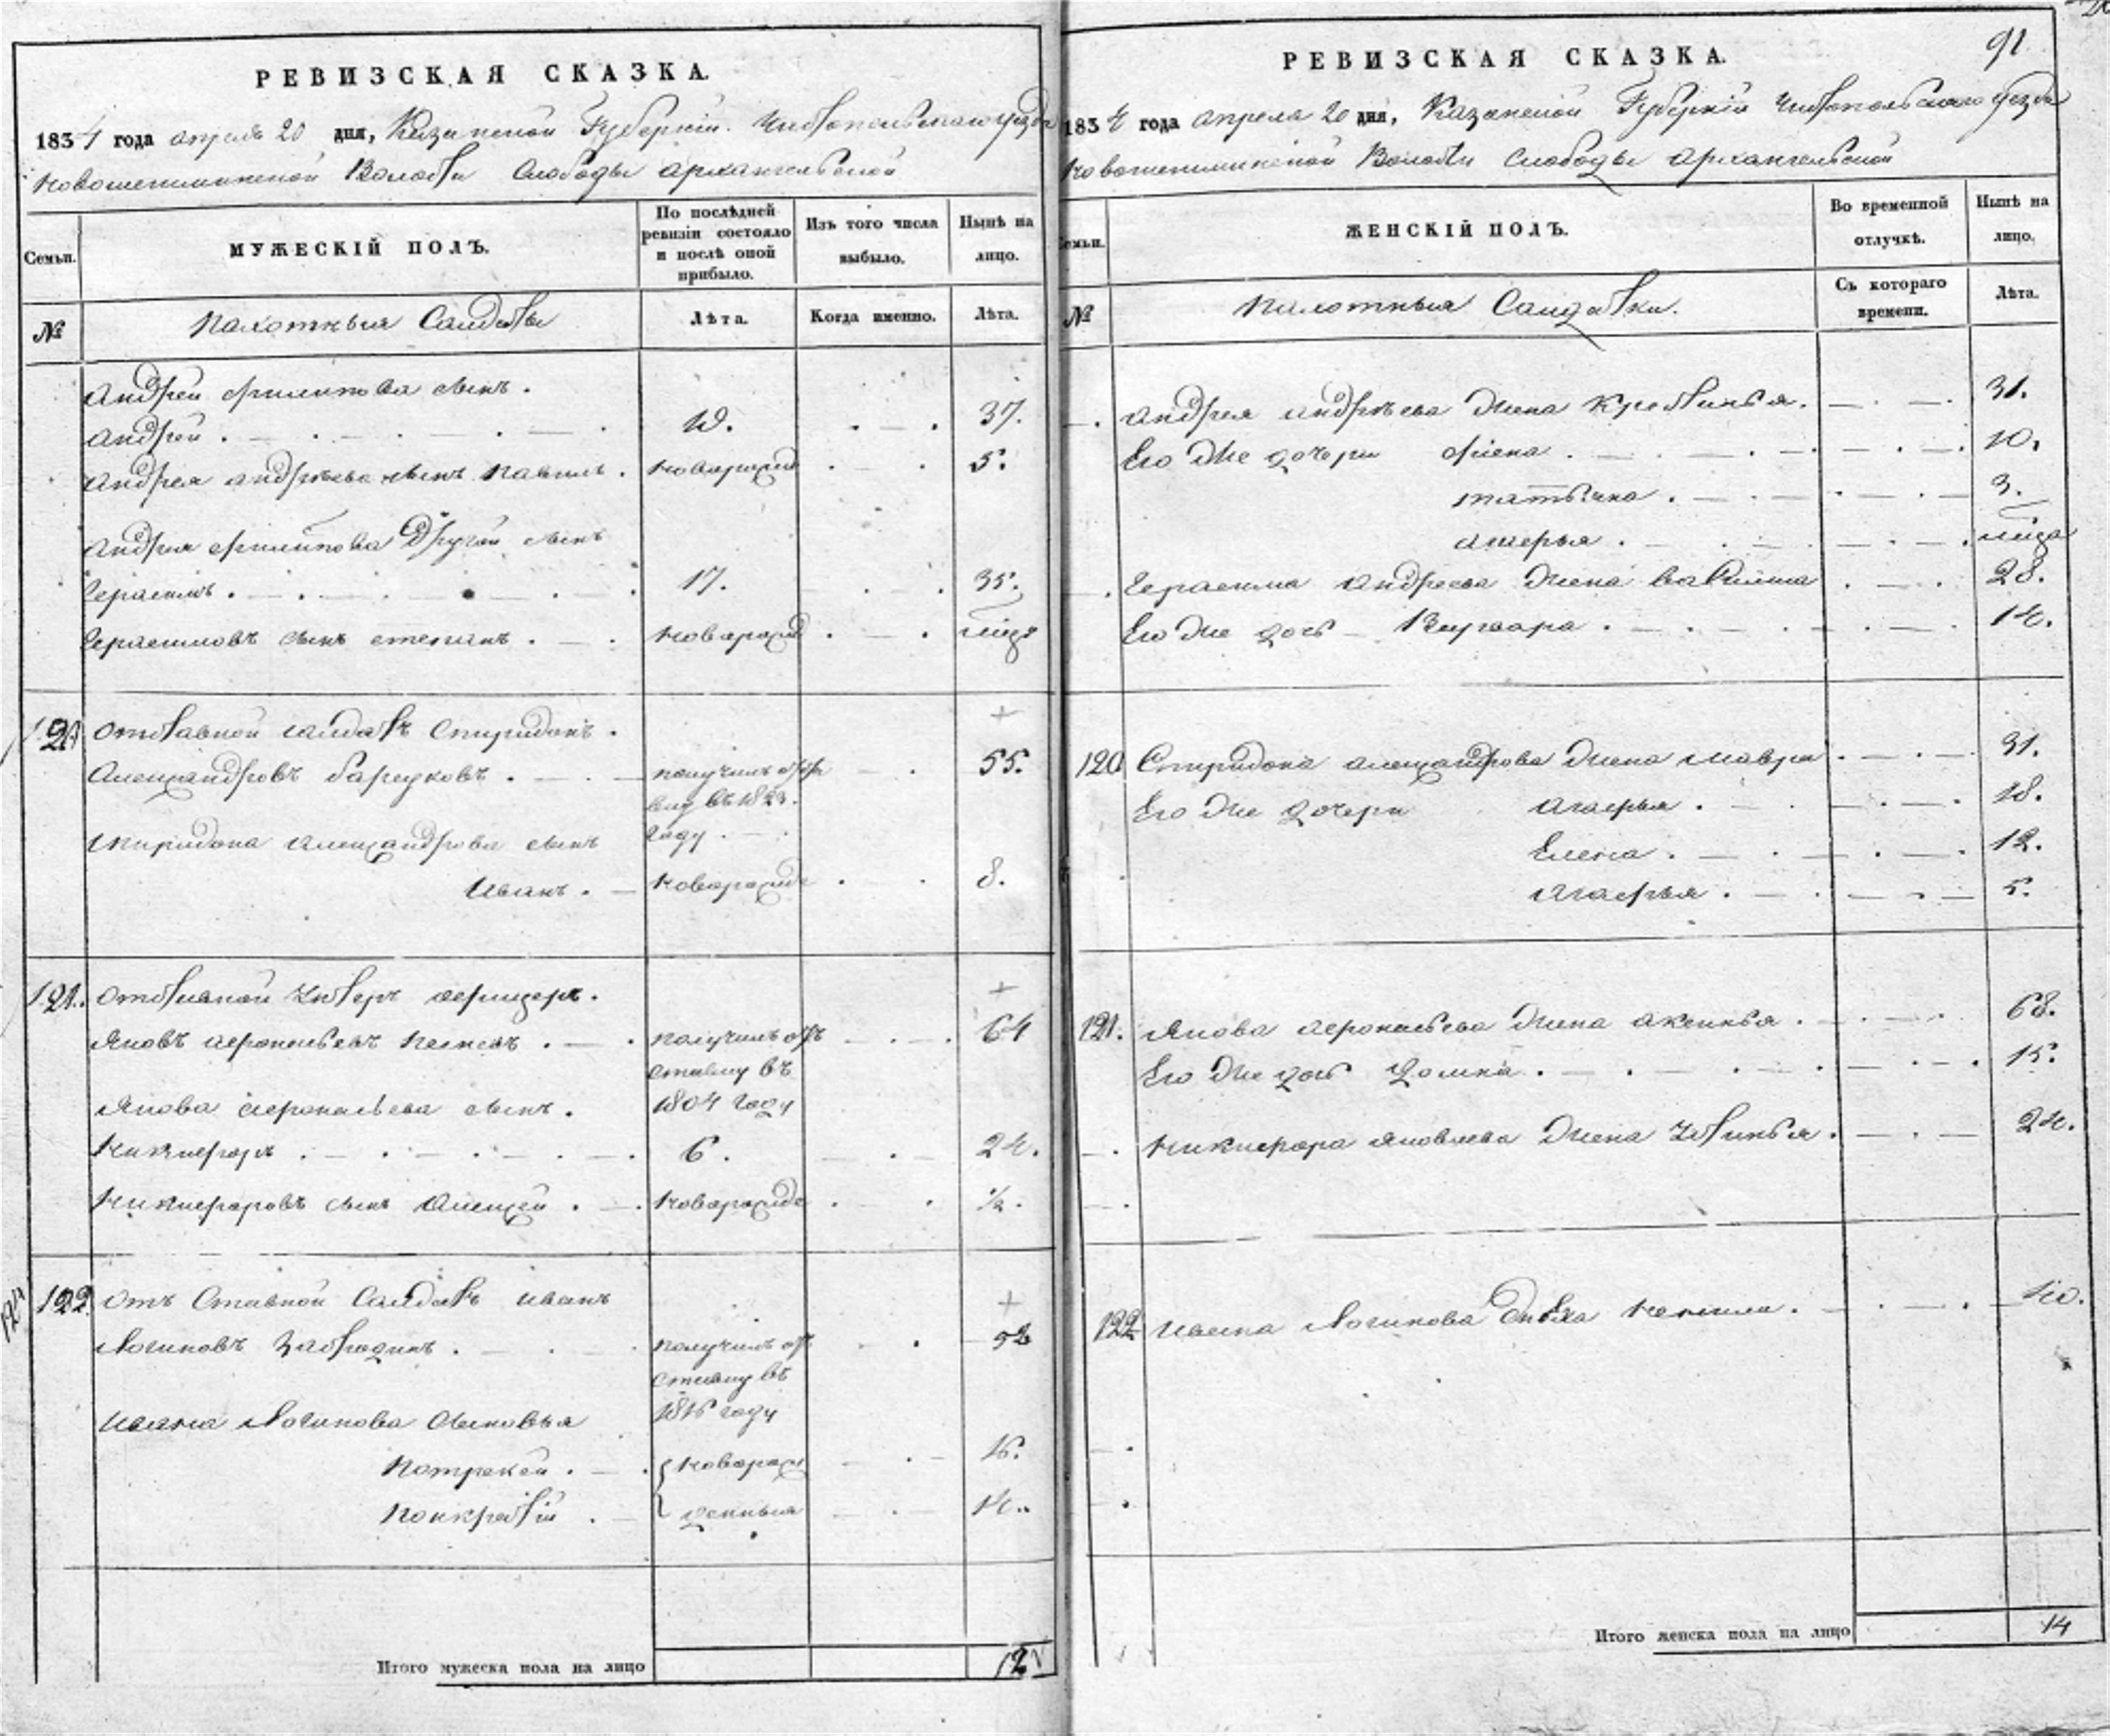 РЕВИЗСКАЯ СКАЗКА.
1834 года апреля 20 дня, Казанской Губернiи. Чистопольскаго уезда
Новошешминской Волости Слободы архангельской
Семьи.
МУЖЕСКIЙ ПОЛЪ.
По послѣдней ревизiи состояло и послѣ оной прибыло.
Изъ того числа выбыло.
Нынѣ на лицо.
№
Пахотныя Салдаты
Лѣта.
Когда именно.
Лѣта.
Андрей Филипова сынъ.
Андрей . 37.
Андрея андрѣева сынъ павилъ . новарожд 5.
Андрея Филипова Другой сынъ
Герасимъ . 17. 35.
Герасимовъ сынъ степанъ . новарожд
120 отставной салдатъ Спиридонъ .
Александровъ . получилъ от 55.
году
Спиридона Александрова сынъ
Иванъ . новарожде 8.
121. отставной Унтеръ афицеръ .
Яковъ . получилъ от 64
ставку въ
Якова сынъ . 1804 году
Никифоръ . 6. 24.
Никифоровъ сынъ Алексей . новарожде ½.
122. отъ Ставной Салдатъ иванъ
Логиновъ . получилъ от 52
ставку въ
Ивана Логинова Сыновья 1816 году
новарож 16.
Понкратiй . денныя 14.
Итого мужеска пола на лицо 12
91
РЕВИЗСКАЯ СКАЗКА.
1834 года апреля 20 дня, Казанской Губернiи Чистопольскаго уезда
Новошешминской Волости Слободы архангельской
Семьи.
ЖЕНСКIЙ ПОЛЪ.
Во временной отлучкѣ.
Нынѣ на лицо.
№
Пахотныя Салдатки.
Съ котораго времени.
Лѣта.
Андрея андрѣева жена . 31.
Его же дочери 10.
татьяна . 3.
Герасима Андреева жена 28.
Его же дочь Варвара . 14.
120 Спиридона александрова жена мавра . 31.
Его же дочери Агафья . 18.
Елена . 12.
Агафья . 5.
121. Якова жена аксинья . 68.
Его же дочь Домна . 15.
Никифора яковлева жена Устинья . 24.
122 Ивана Логинова 40.
Итого женска пола на лицо 14